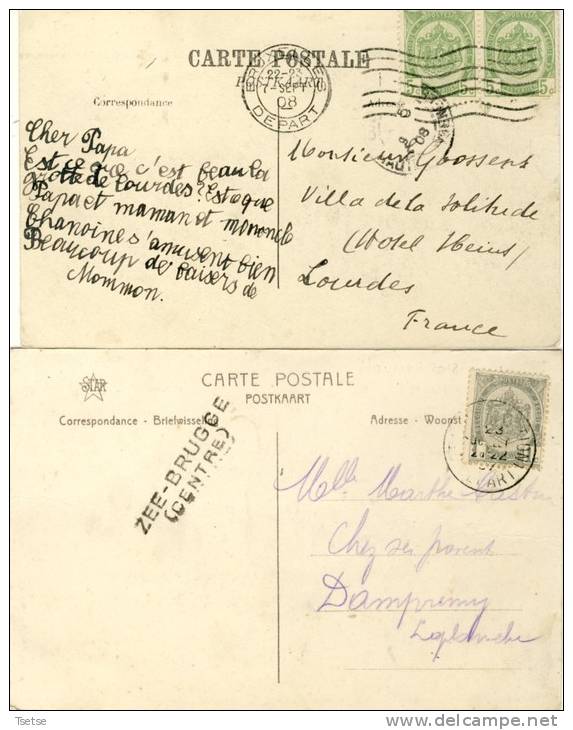 CARTE POSTALE
POSTKAART
Correspondance
22-23
7 SEPT
08
DEPART
5c 5c
Cher Papa
Est ce que c'est beau la
grotte de Lourdes? Est ce que
Papa et maman et mononcle
Chanoine s'amusent bien
Beaucoup de baisers de
Mommon.
Monsieur Goossens
Villa de la Solitude
(Hotel Heins)
Lourdes
France
STAR
CARTE POSTALE
POSTKAART
Correspondance - Briefwisseling
Adresse - Woonst
ZEE-BRUGGE
(CENTRE)
23
Melle Marthe
Chez ses parents
Dampremy
Tsetse
www.delcampe.net